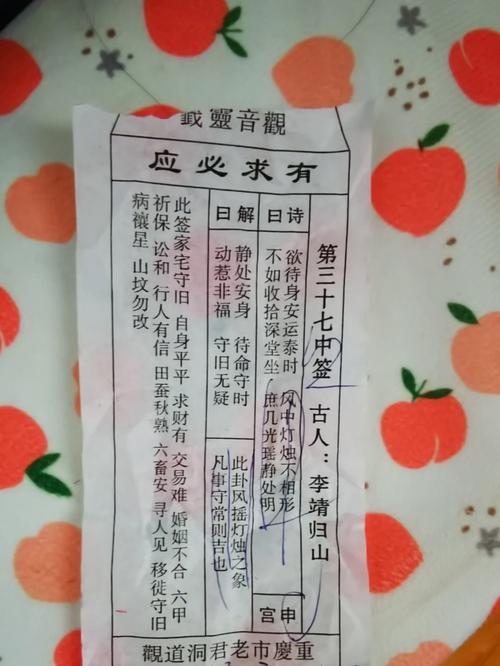 觀音靈籤
有求必应
第三十七中签 古人：李靖归山
申宫
诗曰
欲待身安运泰时 风中灯烛不相形
不如收拾深堂坐 庶几光瑶静处明
解曰
静处安身 待命守时
动惹非福 守旧无疑
此卦风摇灯烛之象
凡事守常则吉也
此签家宅守旧 自身平平 求财有 交易难 婚姻不合 六甲
祈保 讼和 行人有信 田蚕秋熟 六畜安 寻人见 移徙守旧
病禳星 山坟勿改
重慶市老君洞道觀